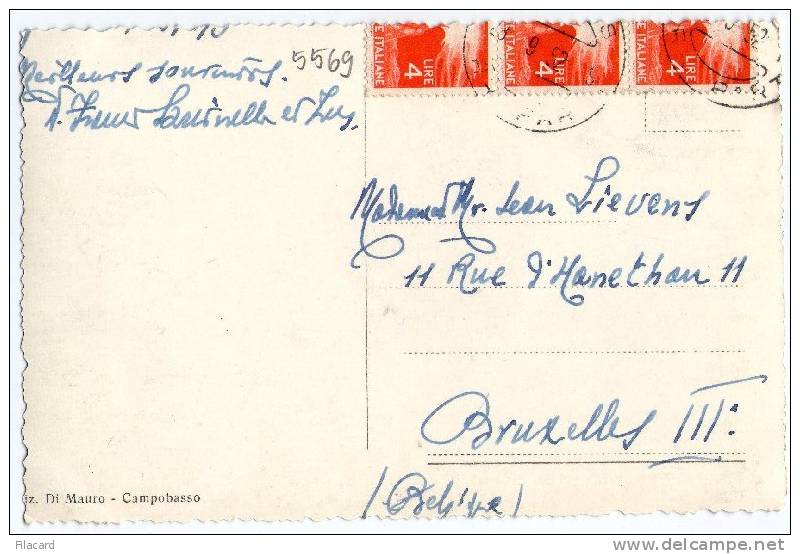 5569
Meilleurs souvenirs.
et
E ITALIANE
LIRE
4
E ITALIANE
LIRE
4
E ITALIANE
LIRE
4
Mr. Jean Lievens
11 Rue d'Hanethan 11
Bruxelles III:
(Belgique)
iz. Di Mauro - Campobasso
Filacard
delcampe.net